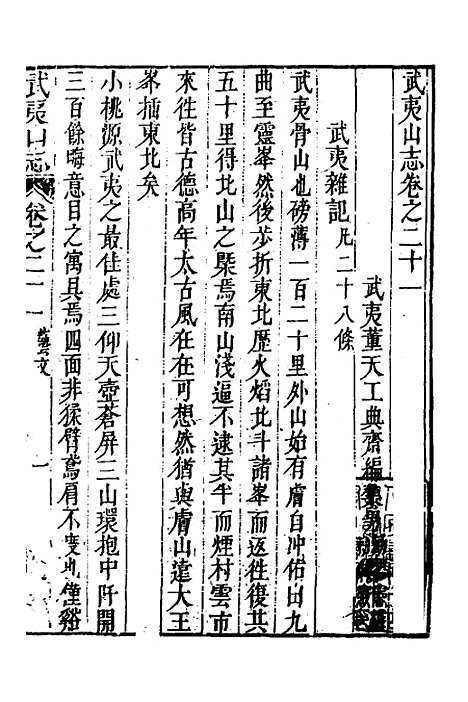 武夷山志卷之二十一
武夷董天工典齋編
武夷雜記凡二十八條
武夷骨山也磅薄一百二十里外山始有膚自冲佑由九
曲至靈峯然後步折東北歷火焰北斗諸峯而返往復其
五十里得北山之槩焉南山淺逼不逮其半而煙村雲市
來往皆古德高年太古風在在可想然猶與膚山遠大王
峯插東北矣
小桃源武夷之最佳處三仰天壺蒼屏三山環抱中阡開
三百餘畮意目之寓具焉四面非猱臂鳶肩不度也僅谿
武夷山志
卷之二十一
藝文
一